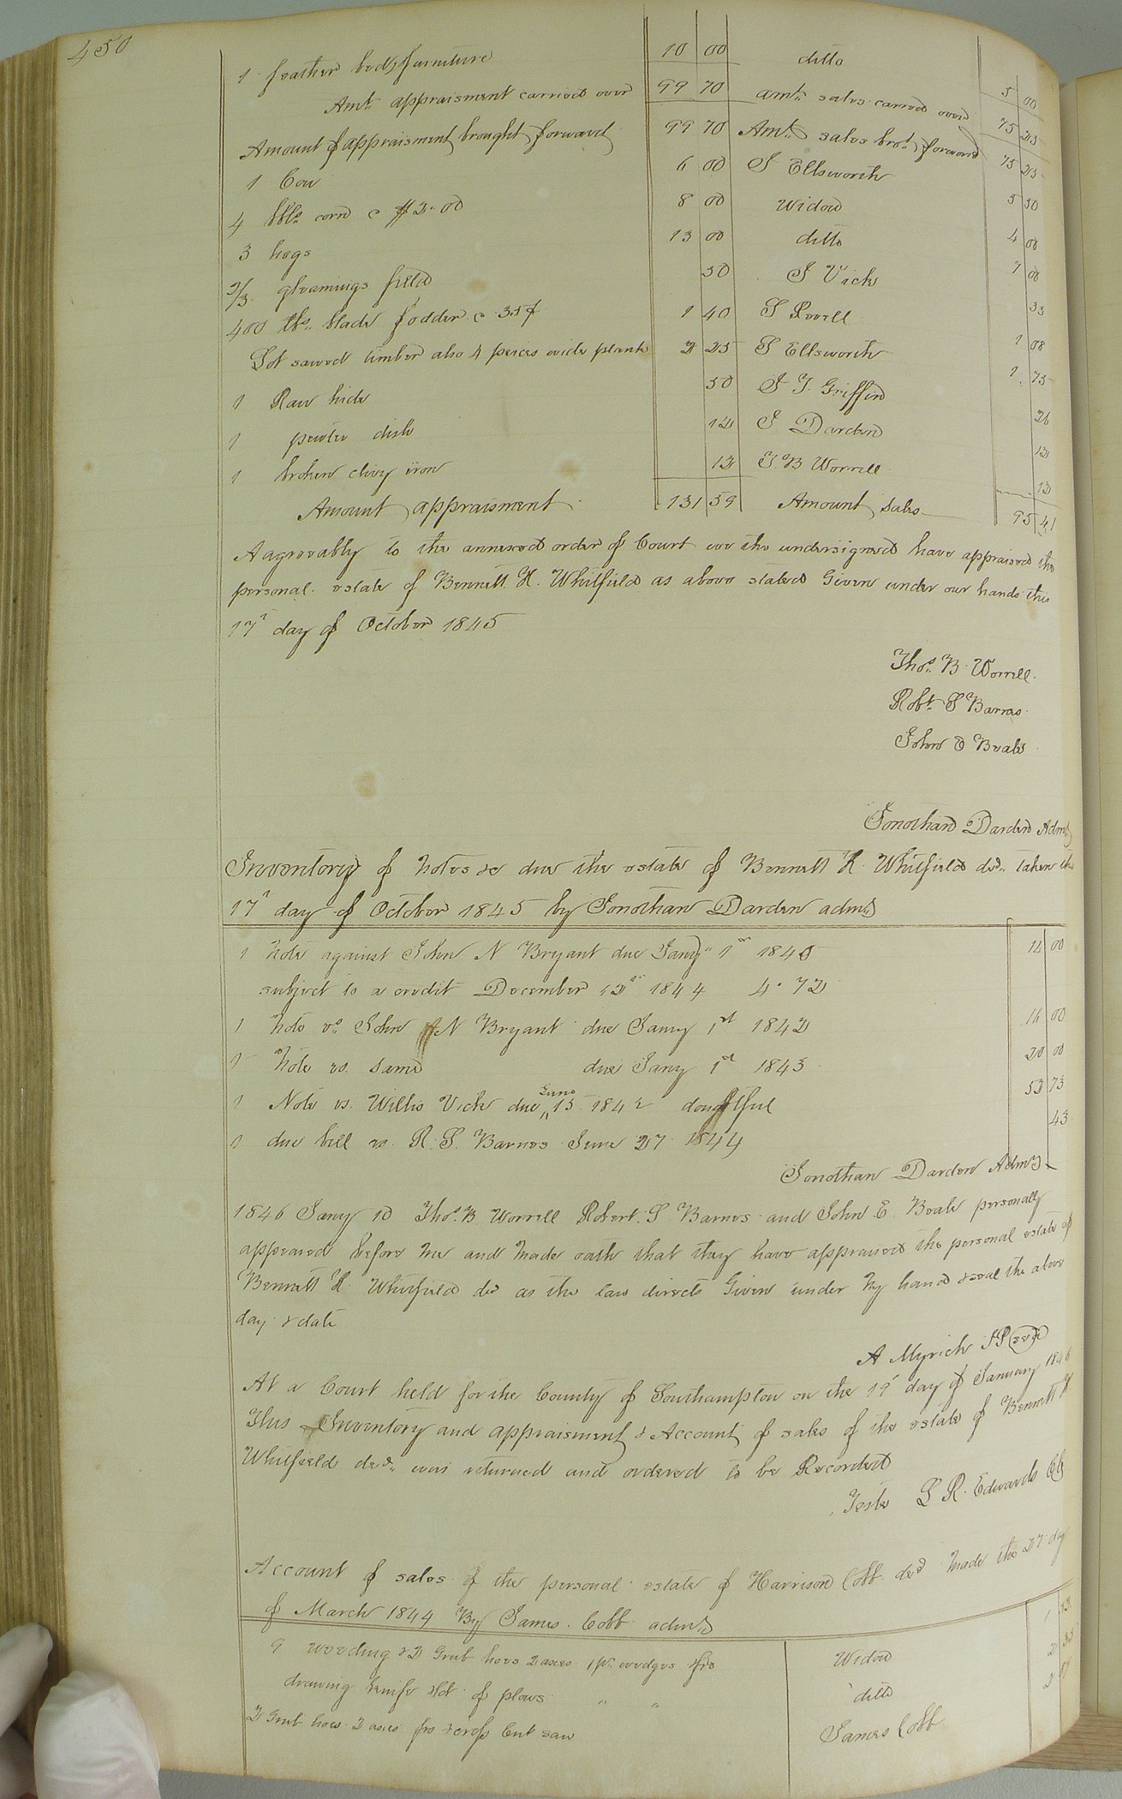 450
1 feather bed & furniture 10 00 ditto 5 00
Amt. appraisment carried over 99 70 Amt. sales carried over 75 25
Amount of appraisment brought forward 99 70 Amt. sales brot. forward 75 25
1 Cow 6 00 S Ellsworth 5 50
4 bbls. corn @ $2.00 8 00 Widow 4 00
3 hogs 13 00 ditto 7 00
2/3 gleanings field 50 J Vick 33
400 lbs. blade fodder @ 35¢ 1 40 S Powell 1 08
Lot sawed timber also 4 peices wide plank 2 25 S Ellsworth 1 75
1 Raw hide 50 J T Griffin 26
1 pewter dish 12 J Darden 12
1 broken clivy iron 12 T. B Worrell 12
Amount appraisment 131 59 Amount sales 95 41
Aagreeably to the annexed order of Court we the undersigned have appraised the
personal estate of Bennett H. Whitfield as above stated Given under our hands this
17" day of October 1845
Thos. B. Worrell
Robt. S Barnes
John E Beale
Jonothan Darden Admr
Inventory of Notes &c due the estate of Bennett H. Whitfield dec. taken the
17" day of October 1845 by Jonothan Darden admr
1 Note against John N Bryant due Jany 1st 1845 12 00
subject to a credit December 12th 1844 4.72
1 Note vs. John N Bryant due Jany 1st 1842 16 00
1 Note vs. same due Jany 1st 1843 20 00
1 Note vs. Willis Vick due June 15 1842 doughtful 52 73
1 due bill vs. R. S. Barnes June 27 1844 43
Jonothan Darden Admr
1846 Jany 10 Thos. B Worrell Robert. S Barnes and John E. Beale personally
appeared before me and made oath that they have appraised the personal estate of
Bennett H. Whitfield dec as the law directs Given under my hand & seal the above
day & date
A Myrick JP (seal)
At a Court held for the County of Southampton on the 19" day of January 1846
This Inventory and appraisment & Account of sales of the estate of Bennett H
Whitfield decd. was returned and ordered to be Recorded
Teste L R. Edwards Clk
Account of sales of the personal estate of Harrison Cobb decd made the 27 day
of March 1844 By James Cobb admr
9 weeding & 2 Grub hoes 2 axes 1 pr. wedges fro Widow 1
drawing knife & lot of plows " " ditto 2
2 Grub hoes 2 axes fro & cross Cut saw James Cobb 2